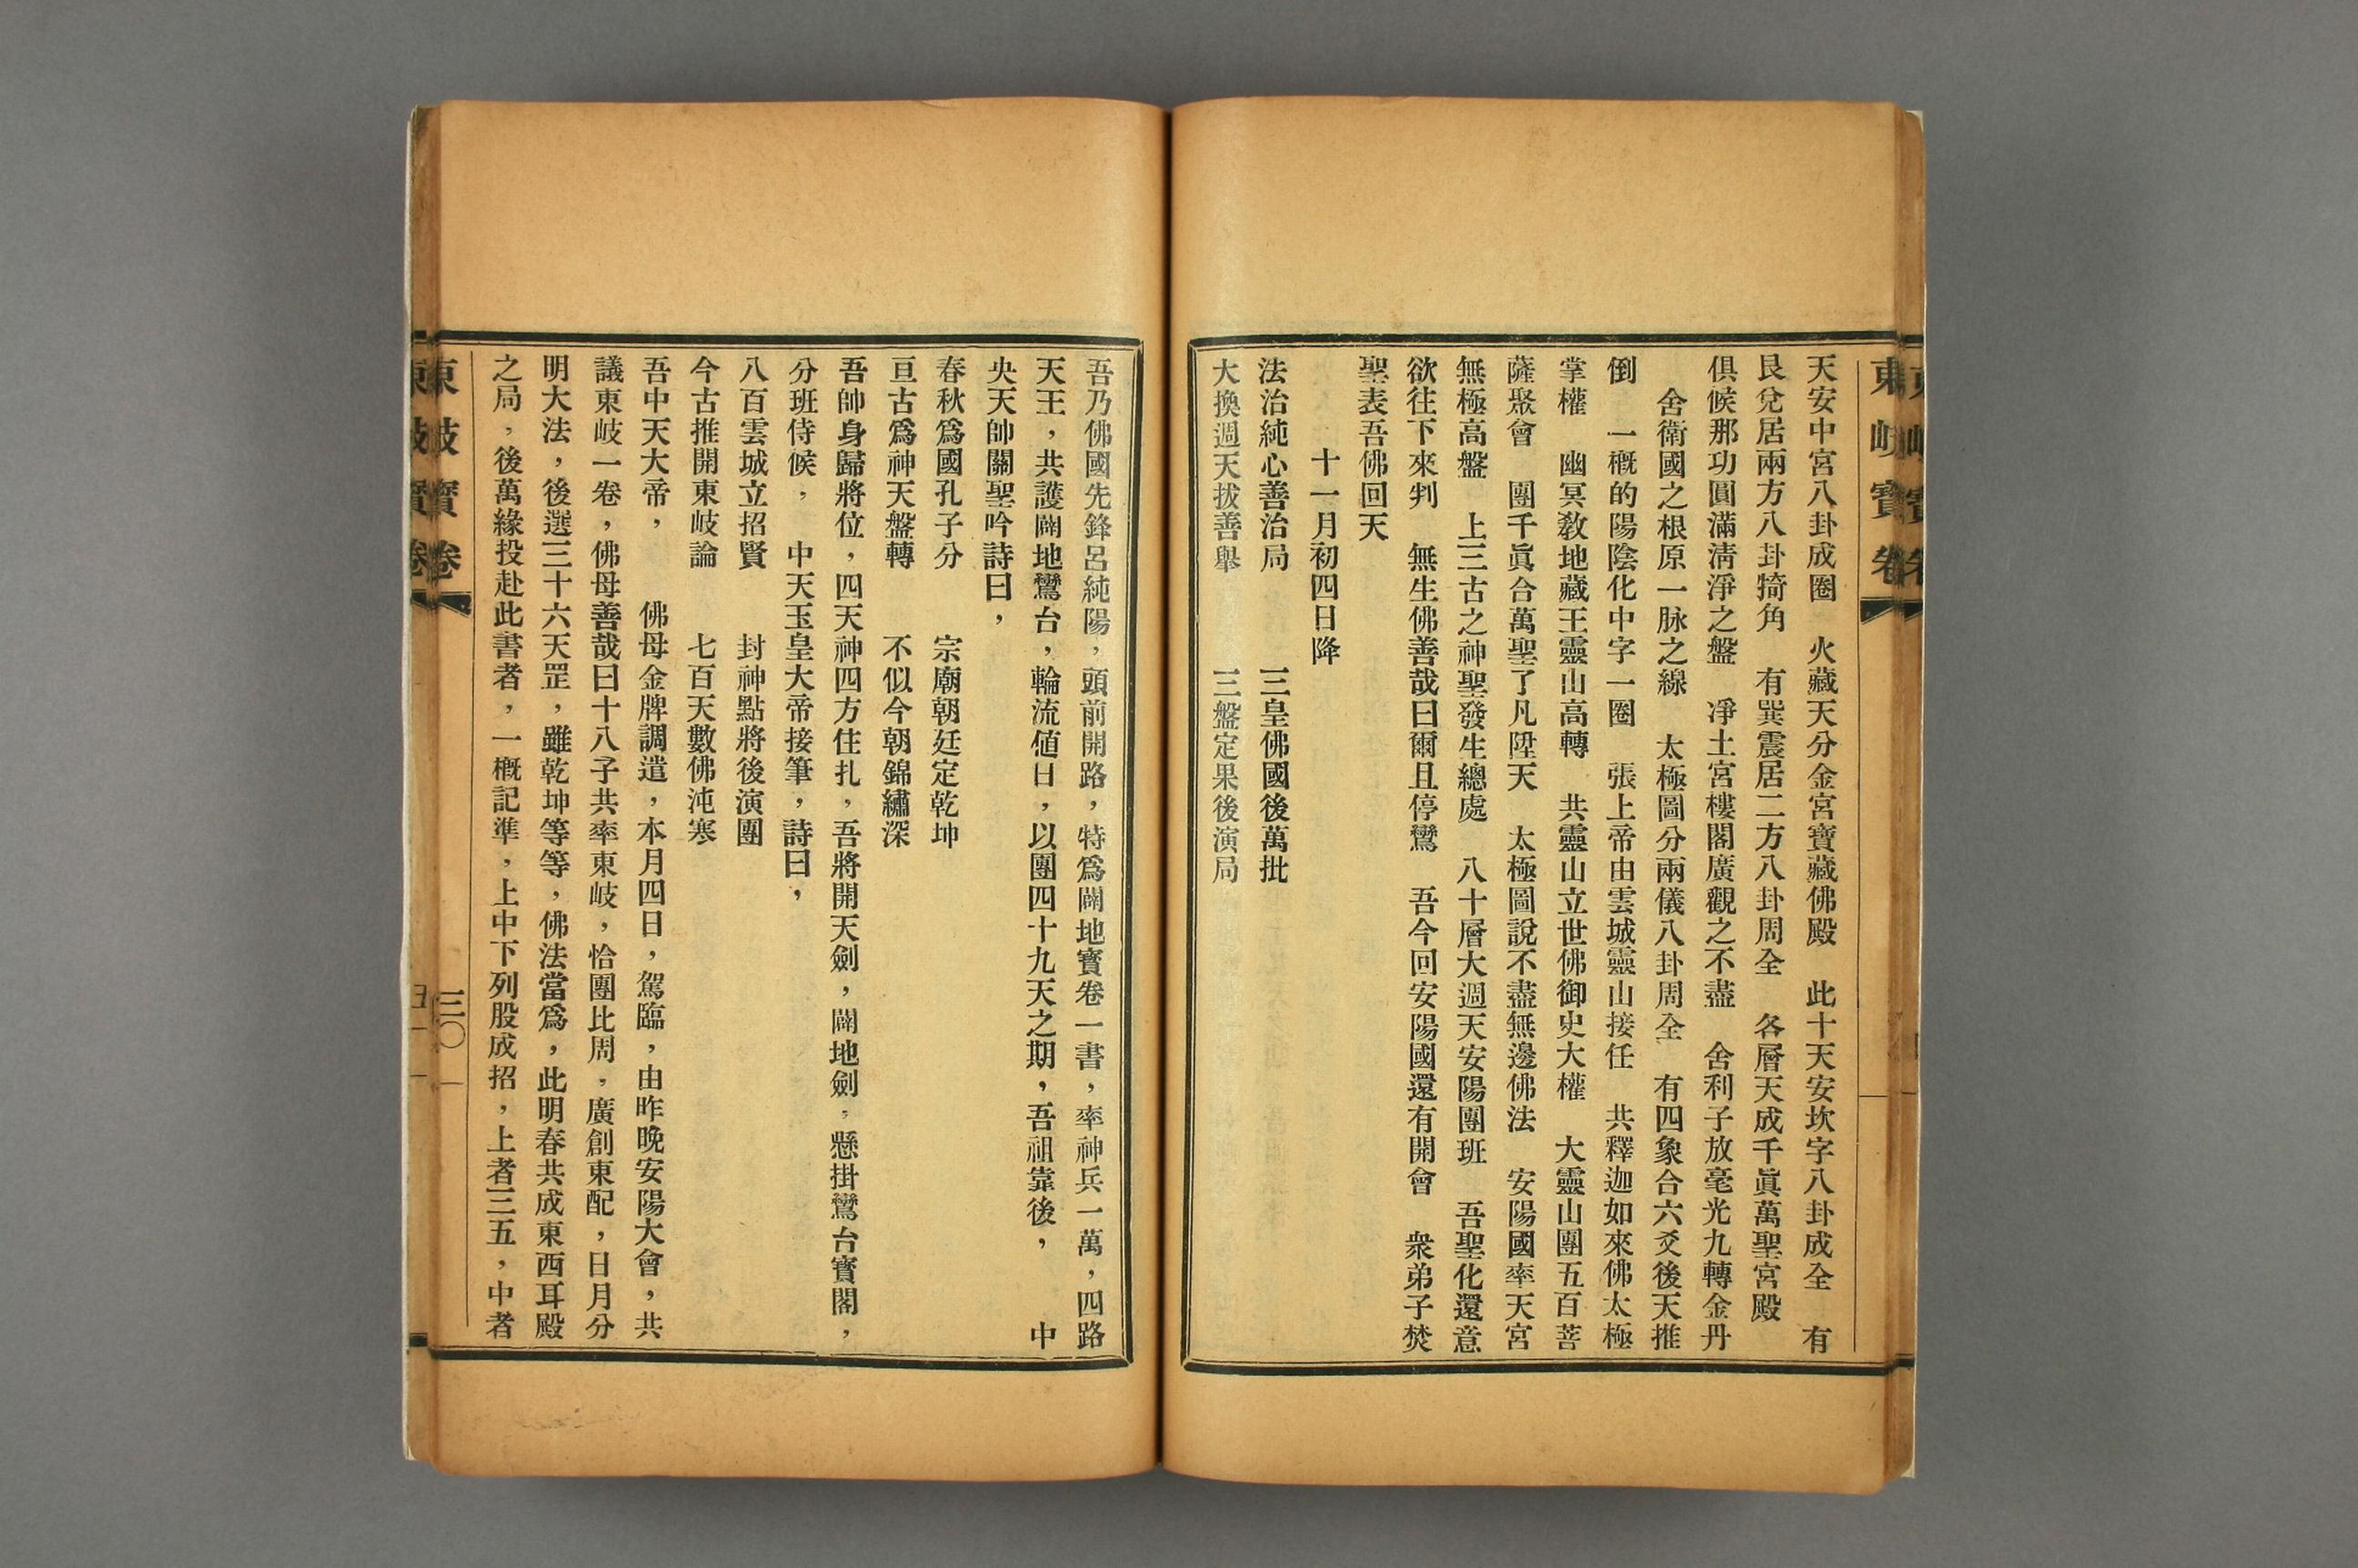 東岐寶卷
天安中宮八卦成圈　火藏天分金宮寶藏佛殿　此十天安坎字八卦成全　有
艮兌居兩方八卦犄角　有巽震居二方八卦周全　各層天成千眞萬聖宮殿
俱候那功圓滿淸淨之盤　凈土宮樓閣廣觀之不盡　舍利子放毫光九轉金丹
舍衛國之根原一脉之線　太極圖分兩儀八卦周全　有四象合六爻後天推
倒　一概的陽陰化中字一圈　張上帝由雲城靈山接任　共釋迦如來佛太極
掌權　幽冥敎地藏王靈山高轉　共靈山立世佛御史大權　大靈山團五百菩
薩聚會　團千眞合萬聖了凡陞天　太極圖說不盡無邊佛法　安陽國率天宮
無極高盤　上三古之神聖發生總處　八十層大週天安陽團班　吾聖化還意
欲往下來判　無生佛善哉曰爾且停鸞　吾今回安陽國還有開會　衆弟子焚
聖表吾佛回天
十一月初四日降
法治純心善治局　三皇佛國後萬批
大換週天拔善舉　三盤定果後演局
吾乃佛國先鋒呂純陽，頭前開路，特爲闢地寶卷一書，率神兵一萬，四路
天王，共護闢地鸞台，輪流値日，以團四十九天之期，吾祖靠後，　中
央天帥關聖吟詩曰，
春秋爲國孔子分　宗廟朝廷定乾坤
亘古爲神天盤轉　不似今朝錦繡深
吾帥身歸將位，四天神四方住扎，吾將開天劍，闢地劍，懸掛鸞台寶閣，
分班侍候，　中天玉皇大帝接筆，詩曰，
八百雲城立招賢　封神點將後演團
今古推開東岐論　七百天數佛沌寒
吾中天大帝，　佛母金牌調遣，本月四日，駕臨，由昨晚安陽大會，共
議東岐一卷，佛母善哉曰十八子共率東岐，恰團比周，廣創東配，日月分
明大法，後選三十六天罡，雖乾坤等等，佛法當爲，此明春共成東西耳殿
之局，後萬緣投赴此書者，一概記準，上中下列股成招，上者三五，中者
東岐寶卷
三〇